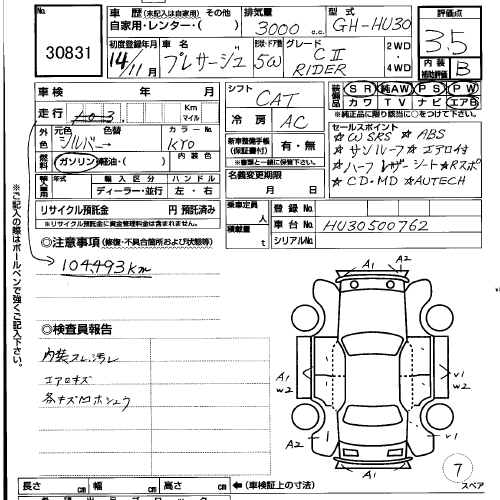 No.
30831
車歴 (未記入は自家用) その他
自家用・レンター・( )
排気量
3000 c.c.
型式
GH-HU30
評価点
3.5
内装
補助評価
B
初度登録年月
14/11月
車名
プレサージュ
形状・ドア数
5W
グレード
CII
RIDER
2WD
4WD
車検 年 月
シフト
CAT
装備品
SR 純AW PS PW
カワ TV ナビ エアB
※純正品に限り該当に○をつけて下さい
走行
Km
マイル
外色
元色 色替
シルバー→
カラーNo.
KY0
冷房
AC
燃料
ガソリン・軽油・( )
内装色
新車整備手帳
(保証書付)
有・無
※書類と一緒に保管
セールスポイント
☆W SRS ☆ABS
☆サンルーフ ☆エアロ付
☆ハーフレザーシート ☆Rスポ
☆CD・MD ☆AUTECH
輸入車用
年式
輸入区分
ハンドル
ディーラー・並行
左・右
名義変更期限
月 日
リサイクル預託金 円 預託済み
※リサイクル預託金に資金管理料金は含まれません。
乗車定員
人
積載量
t
登録No.
車台No.
HU30500762
シリアルNo.
◎注意事項 (修復・不具合箇所および状態等)
104,493km
※ご記入の際はボールペンで強くご記入下さい。
◎検査員報告
内装スレ汚レ
エアロキズ
各キズ凹ホシュウ
A1
A2
A1
V1
W2
V1
W2
A2
A1
7
スペア
長さ cm 幅 cm 高さ cm ←(車検証上の寸法)